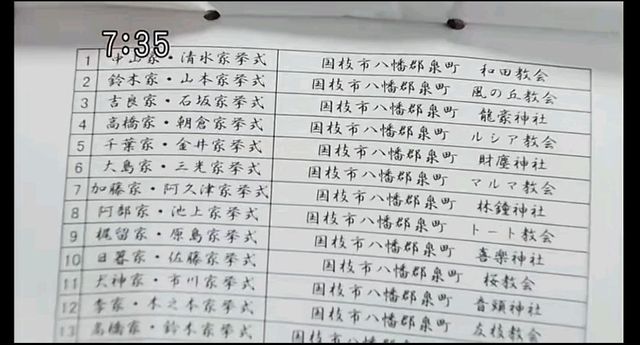 7:35
1 中山家・清水家挙式 国枝市八幡郡泉町 和田教会
2 鈴木家・山本家挙式 国枝市八幡郡泉町 風の丘教会
3 吉良家・石坂家挙式 国枝市八幡郡泉町 能豪神社
4 高橋家・朝倉家挙式 国枝市八幡郡泉町 ルシア教会
5 千葉家・金井家挙式 国枝市八幡郡泉町 財塵神社
6 大島家・三光家挙式 国枝市八幡郡泉町 マルマ教会
7 加藤家・阿久津家挙式 国枝市八幡郡泉町 林鐘神社
8 阿部家・池上家挙式 国枝市八幡郡泉町 トート教会
9 梶留家・原島家挙式 国枝市八幡郡泉町 喜楽神社
10 日暮家・佐藤家挙式 国枝市八幡郡泉町 桜教会
11 犬神家・市川家挙式 国枝市八幡郡泉町 音頭神社
12 李家・木之本家挙式 国枝市八幡郡泉町 友枝教会
13 高橋家・鈴木家挙式